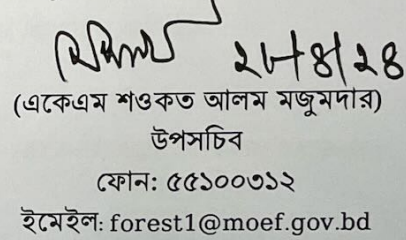 ২৮/৪/২৪
(একেএম শওকত আলম মজুমদার)
উপসচিব
ফোন: ৫৫১০০৩১২
ইমেইল: forest1@moef.gov.bd